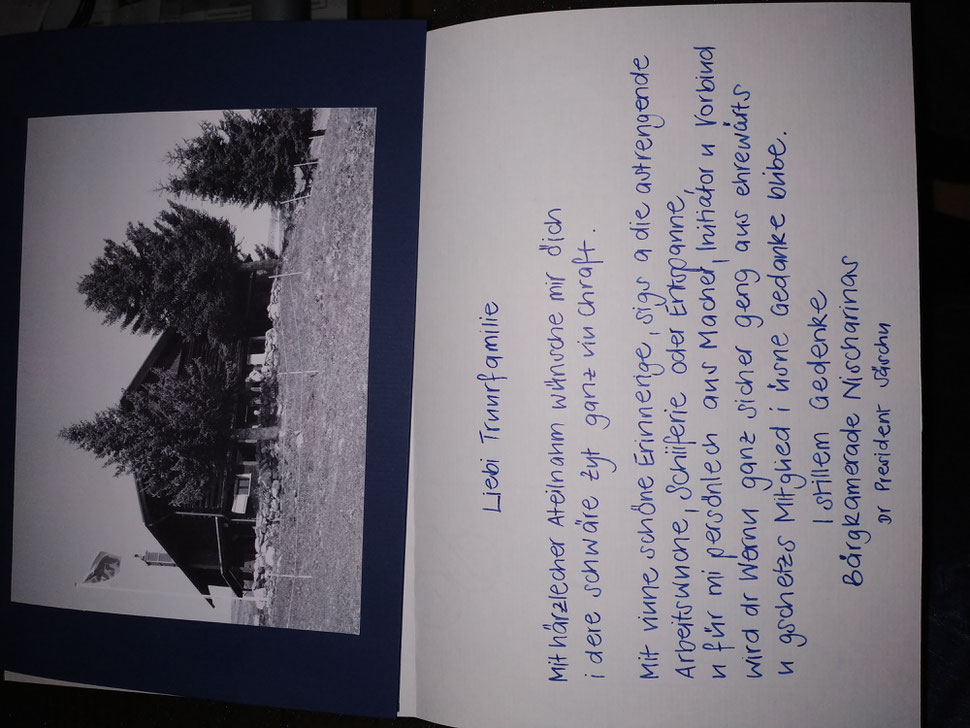 Liebi Truurfamilie
Mit härzlecher Ateilnahm wünsche mir öich
i dere schwäre Zyt ganz viu Chraft.
Mit viune schöne Erinnerige, sigs a die astrengende
Arbeitswuche, Schiiferie oder Entspanne,
u für mi persönlech aus Macher, Initiator u Vorbiud
wird dr Wernu ganz sicher geng aus ehrewärts
u gschetzts Mitglied i üsne Gedanke blibe.
I stillem Gedenke
Bärgkamerade Nischarinas
Dr President